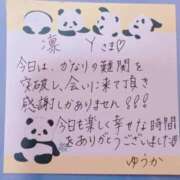 凛 Yさま♡
今日は、かなりの難関を
突破し、会いに来て頂き
感謝しかありません!!!
今日も楽しく幸せな時間
をありがとうございました
ゆうか